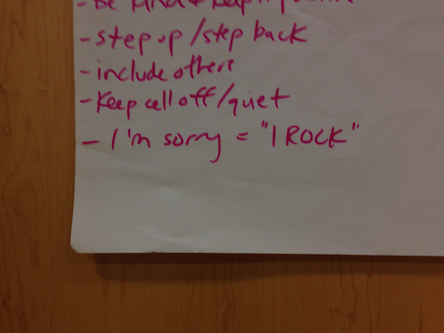 - Be kind + keep it
- step up / step back
- include others
- Keep cell off / quiet
- I'm sorry = "I ROCK"